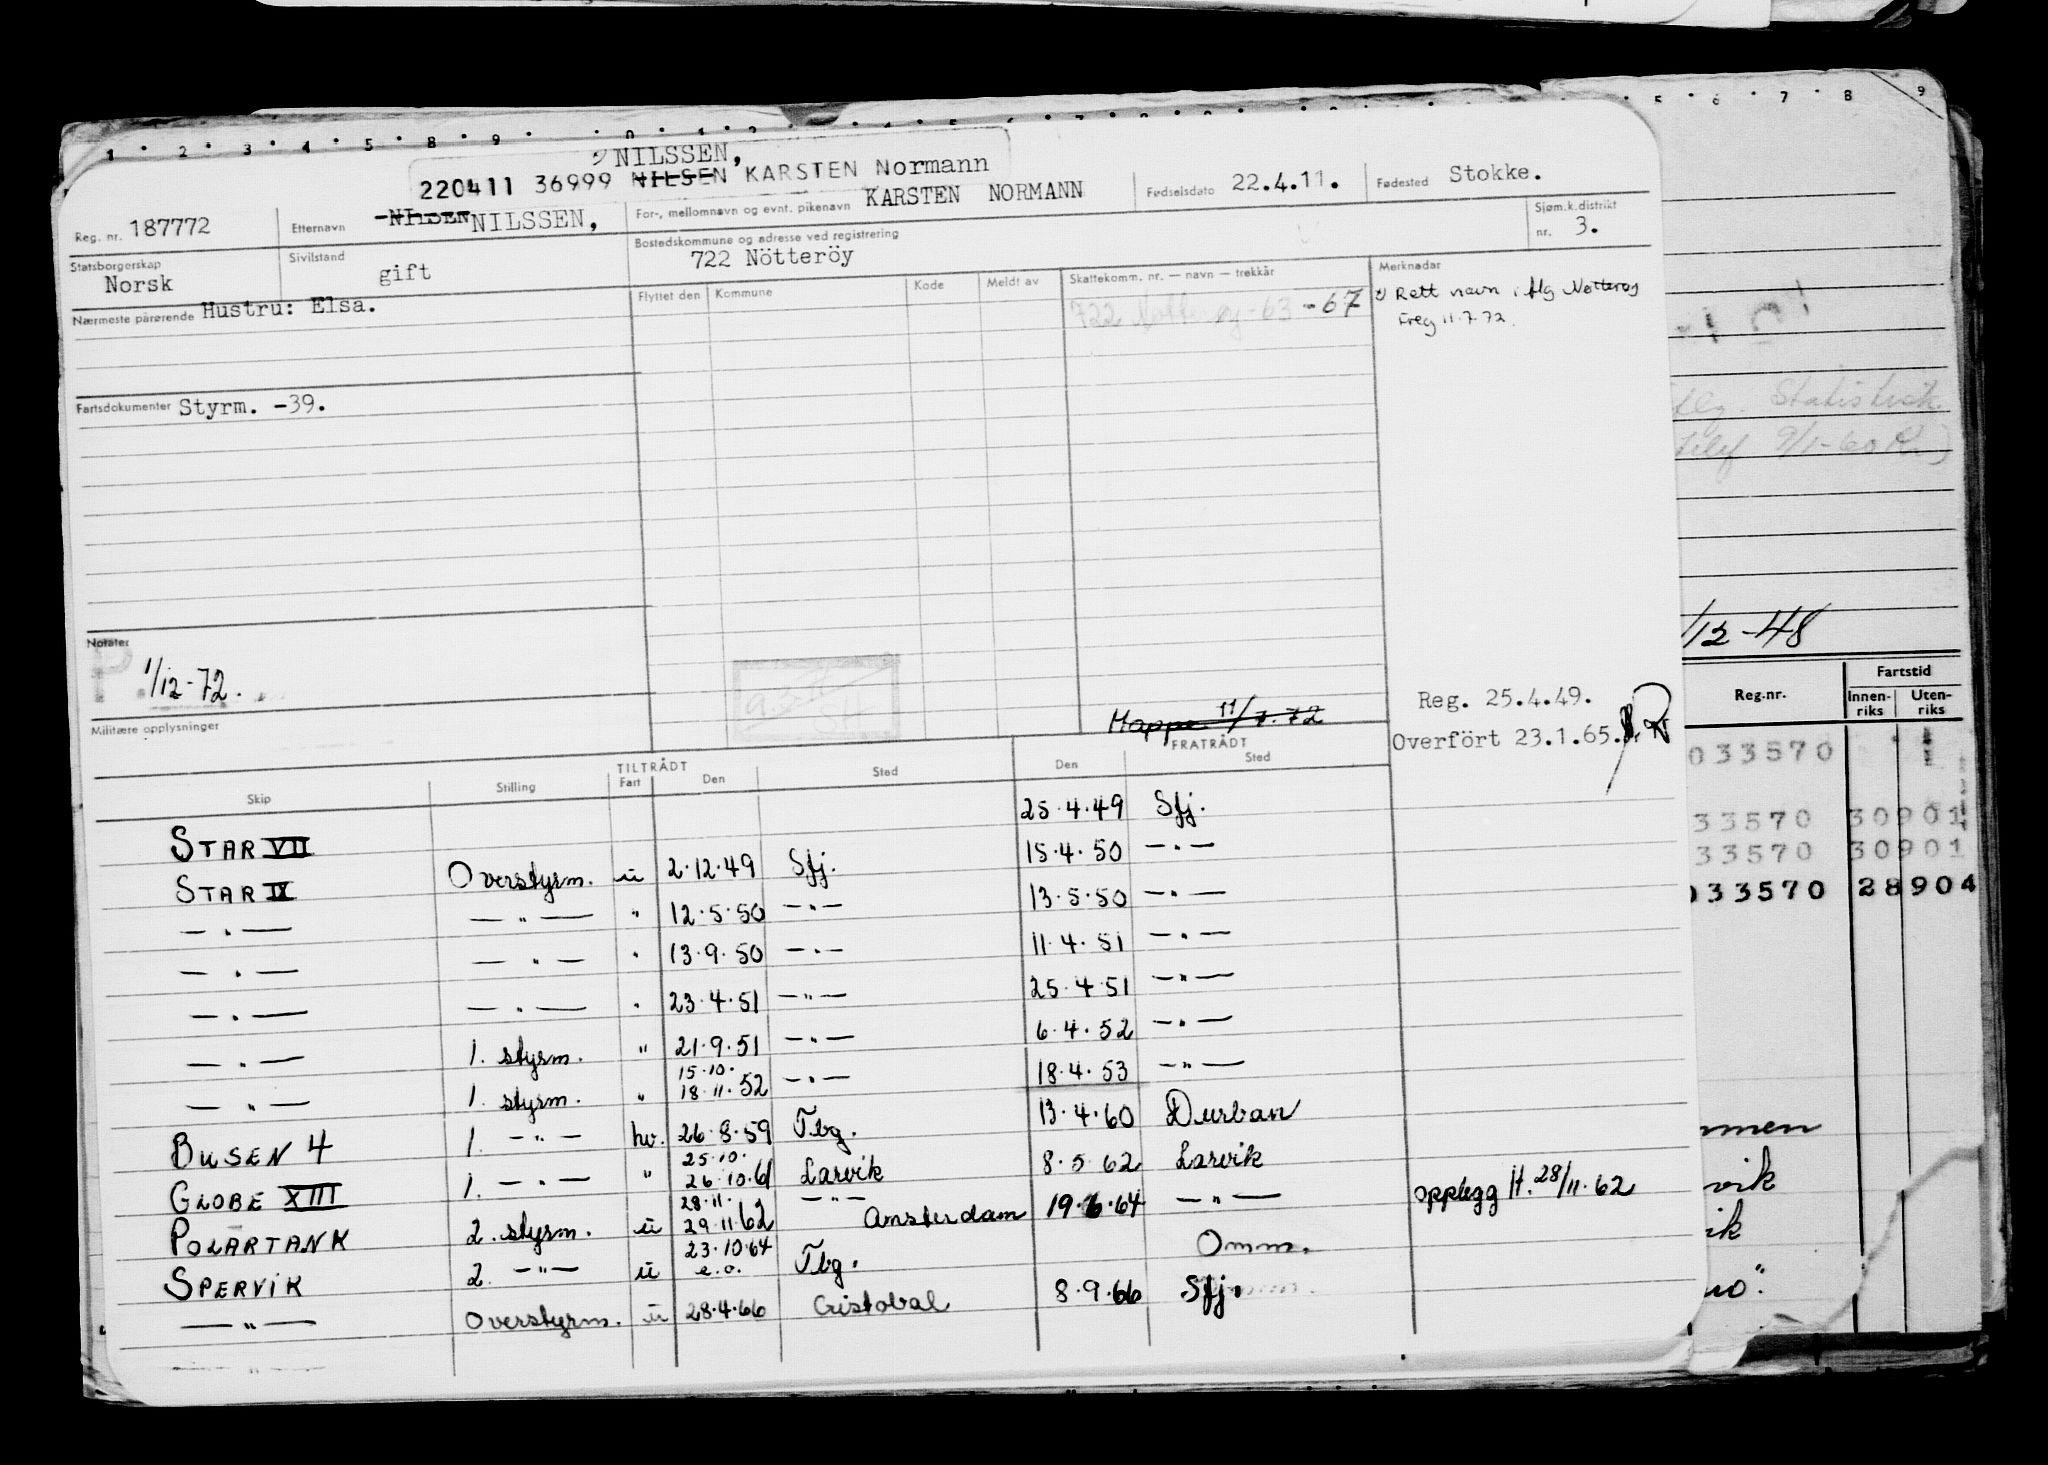 NILSSEN,
220411 36999 NILSEN KARSTEN Normann
Reg. nr. 187772 Etternavn NILSEN NILSSEN, For-, mellomnavn og evnt. pikenavn KARSTEN NORMANN Fødselsdato 22.4.11. Fødested Stokke.
Statsborgerskap Norsk Sivilstand gift Bostedskommune og adresse ved registrering 722 Nötteröy Sjøm.k.distrikt nr. 3.
Nærmeste pårørende Hustru: Elsa. Flyttet den Kommune Kode Meldt av Skattekomm. nr. — navn — trekkår Merknader
722 Nøtterøy -63 -67 Rett navn i flg Nøtterøy
Freg 11.7.72.
Fartsdokumenter Styrm. -39.
flg. Statistisk
9/1-60
Notater
P. 1/12-72.
/12-48
Militære opplysninger
Mappe 11/7.72
Reg. 25.4.49.
Overfört 23.1.65.
Reg.nr. Fartstid
Innenriks Utenriks
TILTRÅDT FRATRÅDT
Skip Stilling Fart Den Sted Den Sted
STAR VII 25.4.49 Sfj.
STAR IX Overstyrm. u 2.12.49 Sfj. 15.4.50 — " —
— " — — " — " 12.5.50 — " — 13.5.50 — " —
— " — — " — " 13.9.50 — " — 11.4.51 — " —
— " — — " — " 23.4.51 — " — 25.4.51 — " —
— " — 1. styrm. " 21.9.51 — " — 6.4.52 — " —
— " — 1. styrm. " 15.10. 18.11.52 — " — 18.4.53 — " —
BUSEN 4 1. — " — hv. 26.8.59 Tbg. 13.4.60 Durban
GLOBE XIII 1. — " — " 25.10. 26.10.61 Larvik 8.5.62 Larvik
POLARTANK 2. styrm. u 28.11. 29.11.62 — " — Amsterdam 19.6.64 — " — opplegg H. 28/11.62
SPERVIK 2. — " — u 23.10.64 e.o. Tbg. Omm.
— " — Overstyrm. u 28.4.66 Cristobal 8.9.66 Sfj.
— " —
033570
33570 30901
33570 30901
033570 28904
mmen
vik
ik